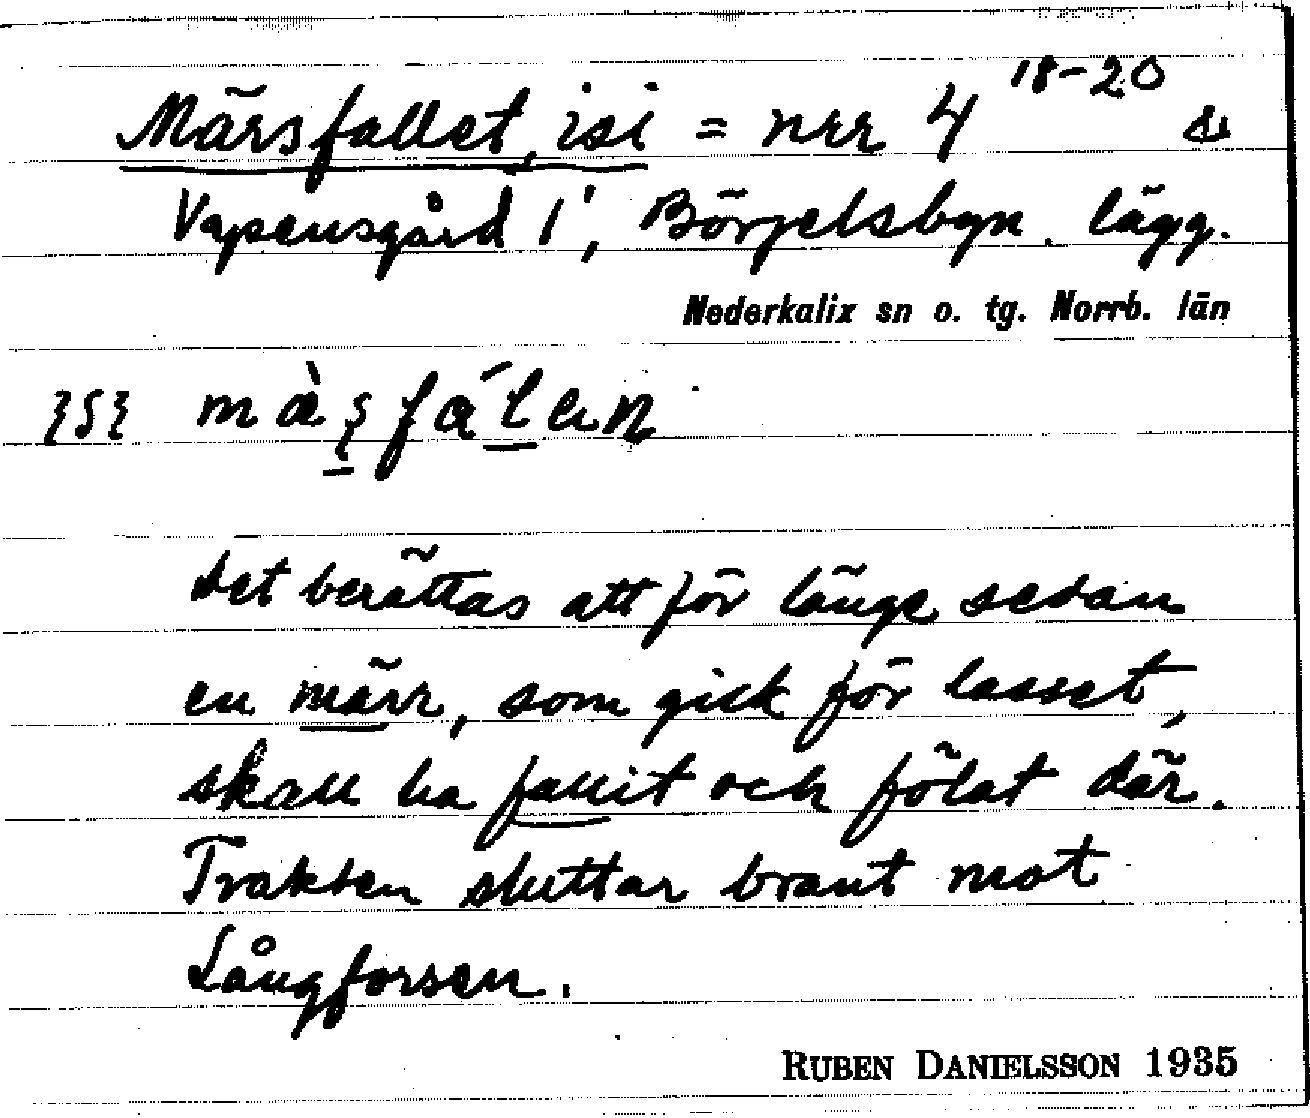 Märsfallet, isi = nrr 4 18-20 &
Vapensgård 1', Börjelsbyn. lägg.
Nederkalix sn o. tg. Norrb. län
Det berättas att för länge sedan
en märr, som gick för lasset,
skall ha fallit och fölat där.
Trakten sluttar brant mot
Långforsen.
RUBEN DANIELSSON 1935